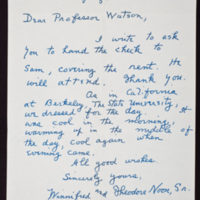 Dear Professor Watson,
I write to ask
you to hand the check to
Sam, covering the rent. He
will attend. Thank you.
As in California
at Berkeley, The State University,
we dressed for the day. It
was cool in the morning,
warming up in the middle of
the day, cool again when
evening came.
All good wishes.
Sincerely yours,
Winnifred and Theodore Noon, Sr.